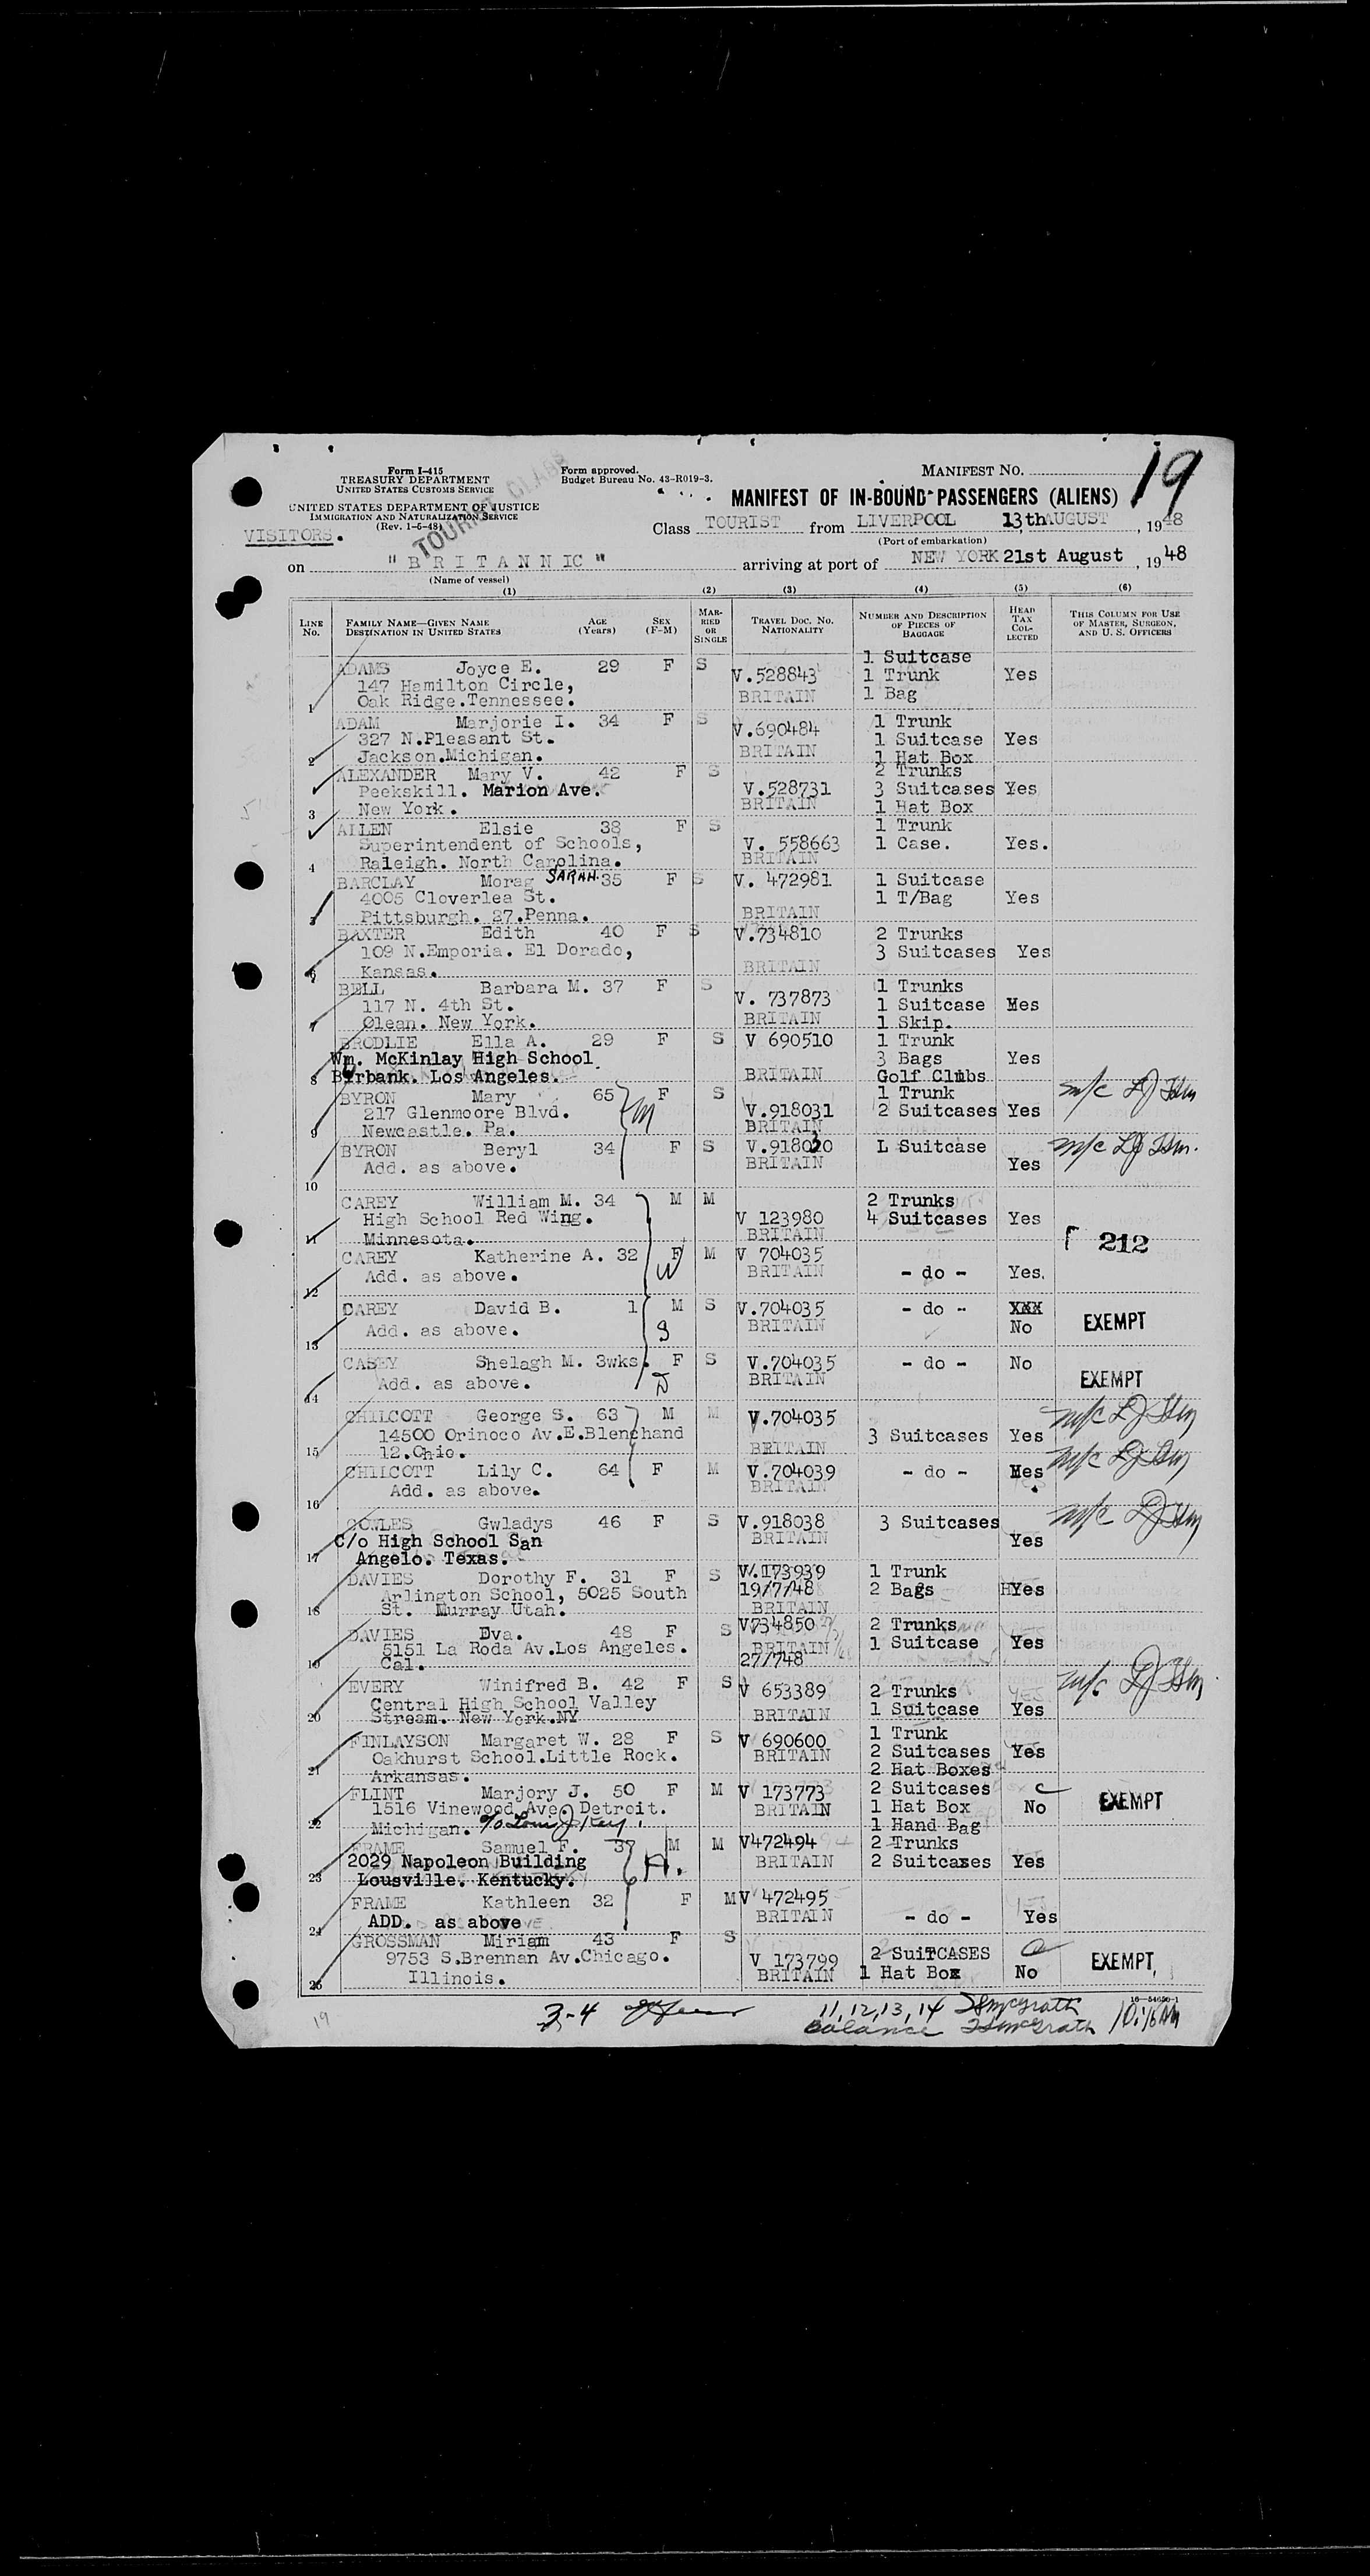 19
Form I-415
TREASURY DEPARTMENT
UNITED STATES CUSTOMS SERVICE
Form approved.
Budget Bureau No. 43-R019-3.
MANIFEST NO.
UNITED STATES DEPARTMENT OF JUSTICE
IMMIGRATION AND NATURALIZATION SERVICE
(Rev. 1-6-48)
TOURIST CLASS
MANIFEST OF IN-BOUND PASSENGERS (ALIENS)
VISITORS.
Class TOURIST from LIVERPOOL 13th AUGUST, 1948
(Port of embarkation)
on "BRITANNIC" arriving at port of NEW YORK 21st August, 1948
(Name of vessel)
(1) (2) (3) (4) (5) (6)
LINE No. FAMILY NAME—GIVEN NAME DESTINATION IN UNITED STATES AGE (Years) SEX (F-M) MARRIED OR SINGLE TRAVEL DOC. No. NATIONALITY NUMBER AND DESCRIPTION OF PIECES OF BAGGAGE HEAD TAX COLLECTED THIS COLUMN FOR USE OF MASTER, SURGEON, AND U. S. OFFICERS
1 Suitcase
ADAMS Joyce E. 29 F S V.528843 1 Trunk Yes
147 Hamilton Circle, BRITAIN 1 Bag
1 Oak Ridge.Tennessee.
ADAM Marjorie I. 34 F S V.690484 1 Trunk
327 N.Pleasant St. BRITAIN 1 Suitcase Yes
2 Jackson.Michigan. 1 Hat Box
ALEXANDER Mary V. 42 F S 2 Trunks
Peekskill. Marion Ave. V.528731 3 Suitcases Yes
3 New York. BRITAIN 1 Hat Box
ALLEN Elsie 38 F S 1 Trunk
Superintendent of Schools, V. 558663 1 Case. Yes.
4 Raleigh. North Carolina. BRITAIN
BARCLAY Morag SARAH. 35 F S V. 472981 1 Suitcase
4005 Cloverlea St. 1 T/Bag Yes
5 Pittsburgh. 27.Penna. BRITAIN
BAXTER Edith 40 F S V.734810 2 Trunks
109 N.Emporia. El Dorado, 3 Suitcases Yes
6 Kansas. BRITAIN
BELL Barbara M. 37 F S 1 Trunks
117 N. 4th St. V. 737873 1 Suitcase Yes
7 Olean. New York. BRITAIN 1 Skip.
BRODLIE Ella A. 29 F S V 690510 1 Trunk
Wm. McKinlay High School 3 Bags Yes
8 Burbank. Los Angeles. BRITAIN Golf Clubs
BYRON Mary 65 F S 1 Trunk
217 Glenmoore Blvd. M V.918031 2 Suitcases Yes
9 Newcastle. Pa. BRITAIN
BYRON Beryl 34 F S V.918030 L Suitcase
Add. as above. BRITAIN Yes
10
CAREY William M. 34 M M 2 Trunks
High School Red Wing. V 123980 4 Suitcases Yes
11 Minnesota. BRITAIN 212
CAREY Katherine A. 32 F M V 704035
Add. as above. W BRITAIN - do - Yes.
12
CAREY David B. 1 M S V.704035 - do - XXX
Add. as above. S BRITAIN No EXEMPT
13
CASEY Shelagh M. 3wks. F S V.704035 - do - No
Add. as above. D BRITAIN EXEMPT
14
CHILCOTT George S. 63 M M V.704035
14500 Orinoco Av.E.Blenchand 3 Suitcases Yes
15 12.Ohio. BRITAIN
CHILCOTT Lily C. 64 F M V.704039 - do - Yes
Add. as above. BRITAIN
16
COWLES Gwladys 46 F S V.918038 3 Suitcases
C/o High School San BRITAIN Yes
17 Angelo. Texas.
DAVIES Dorothy F. 31 F S V.173939 1 Trunk
Arlington School, 5025 South 19/7/48 2 Bags Yes
18 St. Murray Utah. BRITAIN
DAVIES Eva. 48 F S V734850 2 Trunks
5151 La Roda Av.Los Angeles. BRITAIN 1 Suitcase Yes
19 Cal. 27/748
EVERY Winifred B. 42 F S V 653389 2 Trunks
Central High School Valley 1 Suitcase Yes
20 Stream. New York.NY BRITAIN
FINLAYSON Margaret W. 28 F S V 690600 1 Trunk
Oakhurst School.Little Rock. BRITAIN 2 Suitcases Yes
21 Arkansas. 2 Hat Boxes
FLINT Marjory J. 50 F M V 173773 2 Suitcases
1516 Vinewood Ave. Detroit. BRITAIN 1 Hat Box No EXEMPT
22 Michigan. 1 Hand Bag
FRAME Samuel F. 37 M M V472494 2 Trunks
2029 Napoleon Building H. BRITAIN 2 Suitcases Yes
23 Lousville. Kentucky.
FRAME Kathleen 32 F M V 472495
ADD. as above BRITAIN - do - Yes
24
GROSSMAN Miriam 43 F S
9753 S.Brennan Av.Chicago. V 173799 2 SuiTCASES
25 Illinois. BRITAIN 1 Hat Box No EXEMPT
16-54650-1
19
3-4
11, 12, 13, 14
Balance